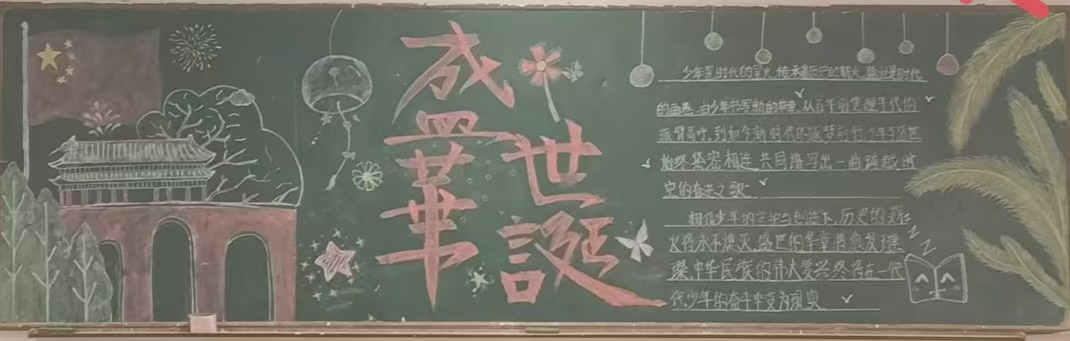 盛世華誕
少年是时代的星火,传承着历史的薪火,盛世是时代
的画卷,由少年书写新的华章,从百年前觉醒年代的
振臂高呼,到如今新时代的逐梦前行,少年与盛世
始终紧密相连,共同谱写出一曲跨越时
空的奋进之歌。
相信少年的奋斗与创造下,历史的薪
火将永不熄灭,盛世的华章将愈发璀
璨,中华民族的伟大复兴终将在一代
代少年的奋斗中变为现实
ZZZ